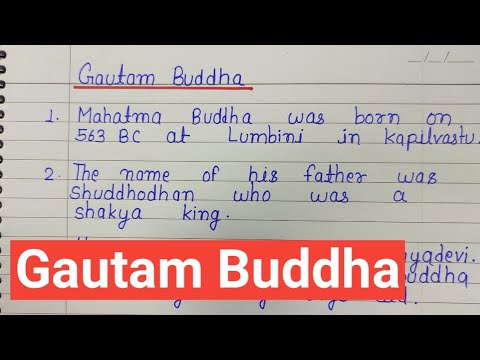 __/__/__
Gautam Buddha
1. Mahatma Buddha was born on
563 BC at Lumbini in kapilvastu.
2. The name of his father was
shuddhodhan who was a
shakya king.
Gautam Buddha